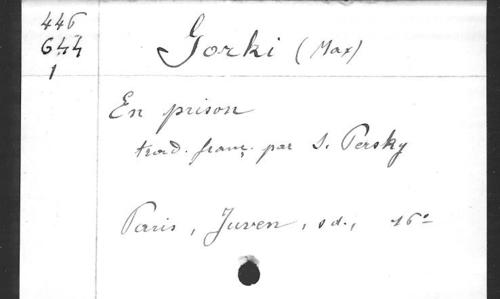 446
644
1
Gorki (Max)
En prison
trad. franç. par S. Persky
Paris, Juven, sd., 16°